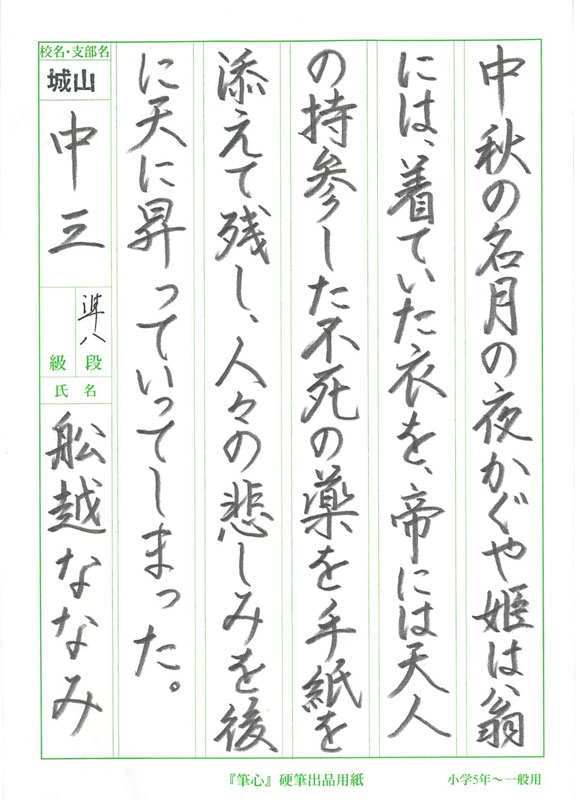 中秋の名月の夜かぐや姫は翁
には、着ていた衣を、帝には天人
の持参した不死の薬を手紙を
添えて残し、人々の悲しみを後
に天に昇っていってしまった。
校名・支部名
城山
中三
準八
段
級
氏名
舩越ななみ
『筆心』硬筆出品用紙
小学5年～一般用